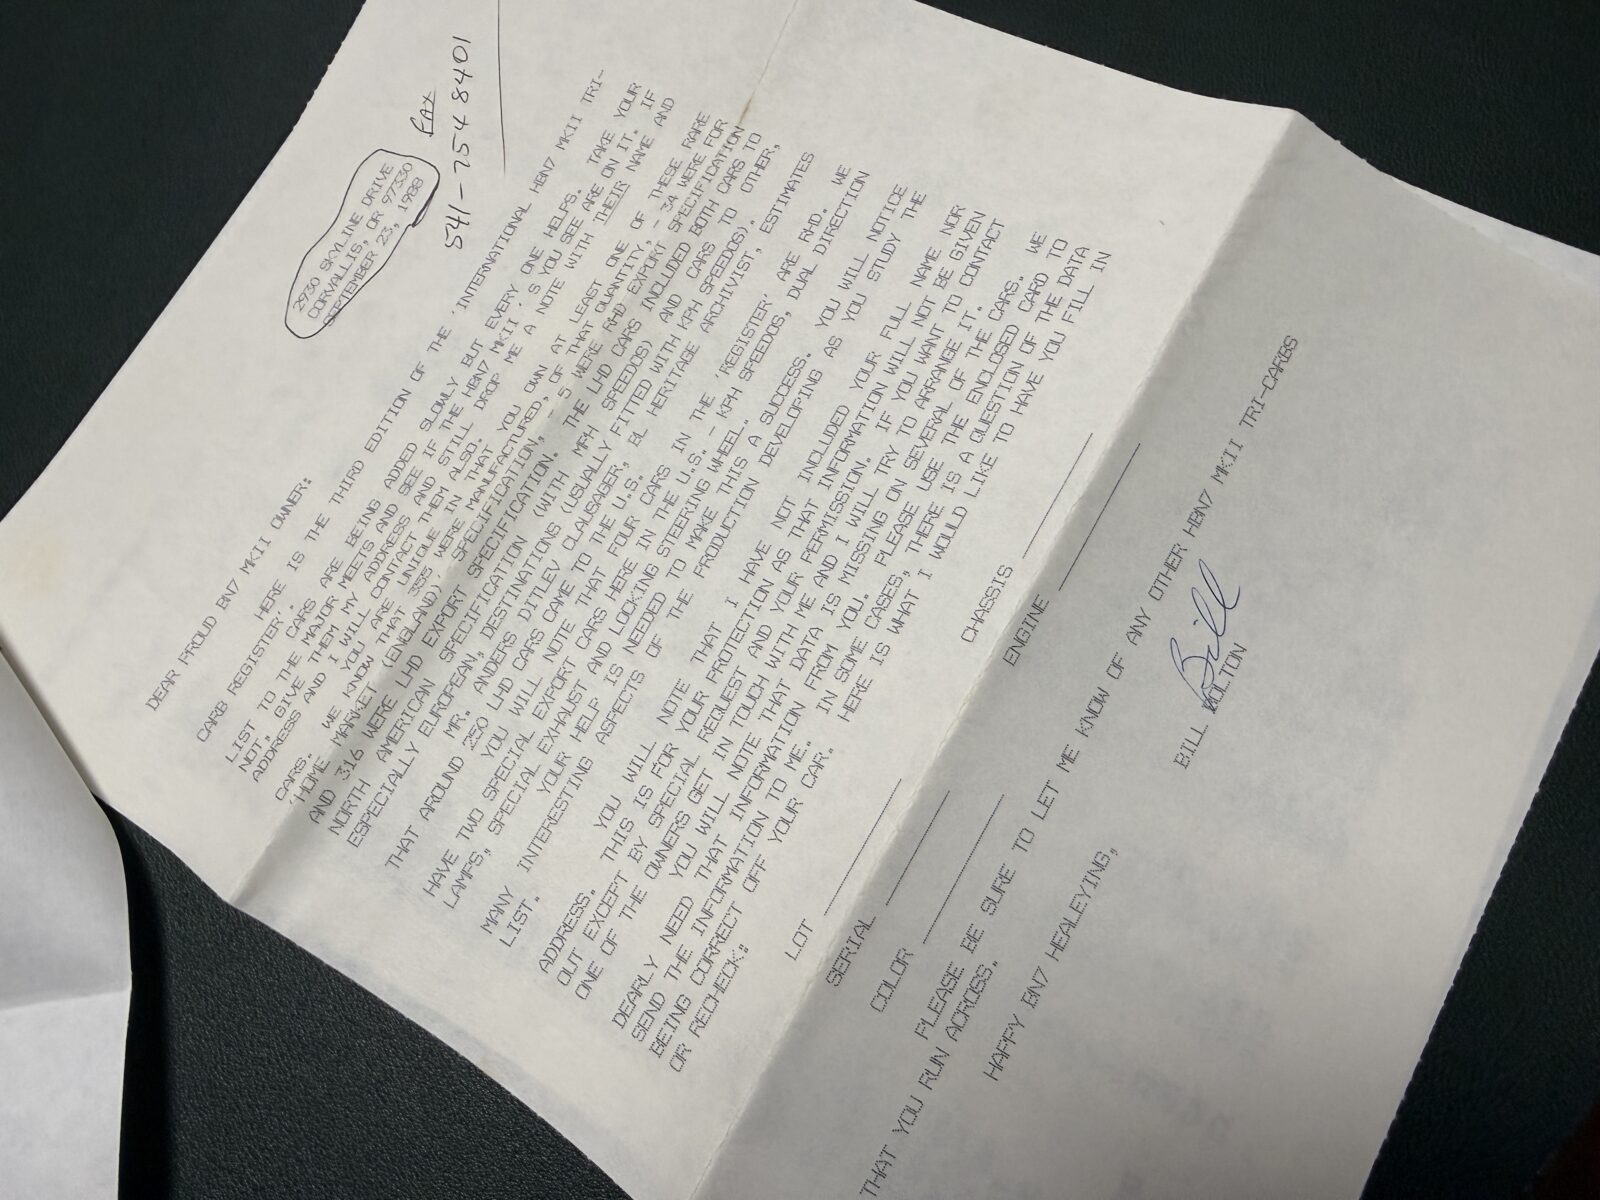 2930 SKYLINE DRIVE
CORVALLIS, OR 97330
SEPTEMBER 23, 1988
FAX
541-754 8401
DEAR PROUD BN7 MKII OWNER:
HERE IS THE THIRD EDITION OF THE 'INTERNATIONAL HBN7 MKII TRI-
CARB REGISTER'. CARS ARE BEING ADDED SLOWLY BUT EVERY ONE HELPS. TAKE YOUR
LIST TO THE MAJOR MEETS AND SEE IF THE HBN7 MKII'S YOU SEE ARE ON IT. IF
NOT, GIVE THEM MY ADDRESS AND STILL DROP ME A NOTE WITH THEIR NAME AND
ADDRESS AND I WILL CONTACT THEM ALSO.
AND YOU ARE UNIQUE IN THAT YOU OWN AT LEAST ONE OF THESE RARE
CARS. WE KNOW THAT 355 WERE MANUFACTURED, OF THAT QUANTITY, - 34 WERE FOR
'HOME MARKET (ENGLAND)' SPECIFICATION, - 5 WERE RHD EXPORT SPECIFICATION
AND 316 WERE LHD EXPORT SPECIFICATION. THE LHD CARS INCLUDED BOTH CARS TO
NORTH AMERICAN SPECIFICATION (WITH MPH SPEEDOS) AND CARS TO OTHER,
ESPECIALLY EUROPEAN, DESTINATIONS (USUALLY FITTED WITH KPH SPEEDOS).
MR. ANDERS DITLEV CLAUSAGER, BL HERITAGE ARCHIVIST, ESTIMATES
THAT AROUND 250 LHD CARS CAME TO THE U.S.
YOU WILL NOTE THAT FOUR CARS IN THE 'REGISTER' ARE RHD. WE
HAVE TWO SPECIAL EXPORT CARS HERE IN THE U.S. - KPH SPEEDOS, DUAL DIRECTION
LAMPS, SPECIAL EXHAUST AND LOCKING STEERING WHEEL.
YOUR HELP IS NEEDED TO MAKE THIS A SUCCESS. YOU WILL NOTICE
MANY INTERESTING ASPECTS OF THE PRODUCTION DEVELOPING AS YOU STUDY THE
LIST.
YOU WILL NOTE THAT I HAVE NOT INCLUDED YOUR FULL NAME NOR
ADDRESS. THIS IS FOR YOUR PROTECTION AS THAT INFORMATION WILL NOT BE GIVEN
OUT EXCEPT BY SPECIAL REQUEST AND YOUR PERMISSION. IF YOU WANT TO CONTACT
ONE OF THE OWNERS GET IN TOUCH WITH ME AND I WILL TRY TO ARRANGE IT.
YOU WILL NOTE THAT DATA IS MISSING ON SEVERAL OF THE CARS. WE
DEARLY NEED THAT INFORMATION FROM YOU. PLEASE USE THE ENCLOSED CARD TO
SEND THE INFORMATION TO ME. IN SOME CASES, THERE IS A QUESTION OF THE DATA
BEING CORRECT OFF YOUR CAR. HERE IS WHAT I WOULD LIKE TO HAVE YOU FILL IN
OR RECHECK:
LOT CHASSIS
SERIAL ENGINE
COLOR
PLEASE BE SURE TO LET ME KNOW OF ANY OTHER HBN7 MKII TRI-CARBS
THAT YOU RUN ACROSS.
HAPPY BN7 HEALEYING,
Bill
BILL BOLTON